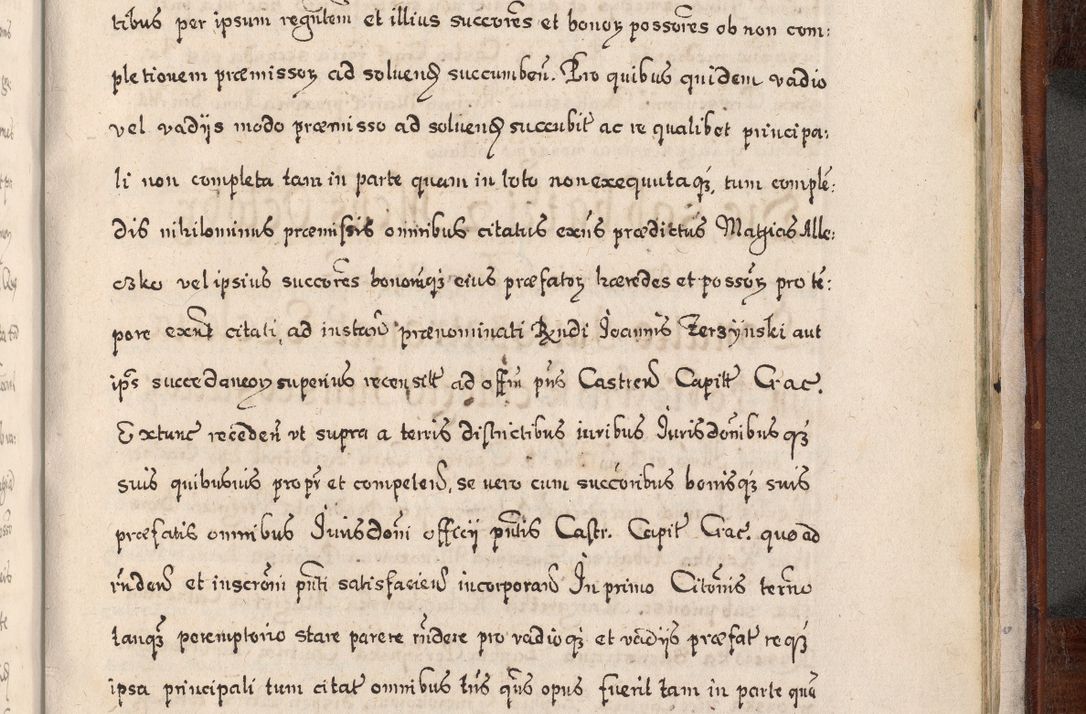 tibus per ipsum regn̄tem et illius succōres et bonoꝝ possōres ob non com:
pletionem præmissoꝝ ad soluenđ succumben̄. Pro quibus quidem vadio
vel vadijs modo præmisso ad soluenđ succubit̄ ac re qualibet principa:
li non completa tam in parte quam in toto non exequuta qꝫ, tum complē:
dis nihilominus præmissis omnibus citatus exn̄s prædictus Mathias Alle:
czko vel ipsius succōres bonorūqꝫ eius præfatoꝝ hæredes et possōꝝ pro tē:
pore exn̄t citati, ad instan̄ prænominati Rn̄di Joannis Zerzynski aut
ip̄s succedaneoꝝ superius recensit̄ ad off̄m pn̄s Castren̄ Capitt̄ Crac̄.
Extunc receden̄ vt supra a terris districtibus iuribus Jurisdōnibus qꝫ
suis quibusuis propr̄ et competen̄, se vero cum succōribus bonisqꝫ suis
præfatis omnibus Jurisdōni officij pn̄tis Castr. Capit̄ Crac̄. quo ad
rn̄den̄ et inscrōni pn̄ti satisfacien̄ incorporan̄ In primo Citōnis termō
tanqꝫ peremptorio stare parere rn̄dere pro vadio qꝫ et vadijs præfat̄ re qꝫ
ipsa principali tum citat̄ omnibus tn̄s qn̄s opus fuerit tam in parte quā